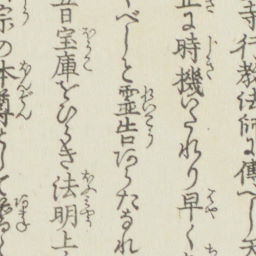 寺行教法師に傳へし天
に時機いたれり早く
べしと霊告あらたなれ
宝庫をひらき法明上
宗の本尊として